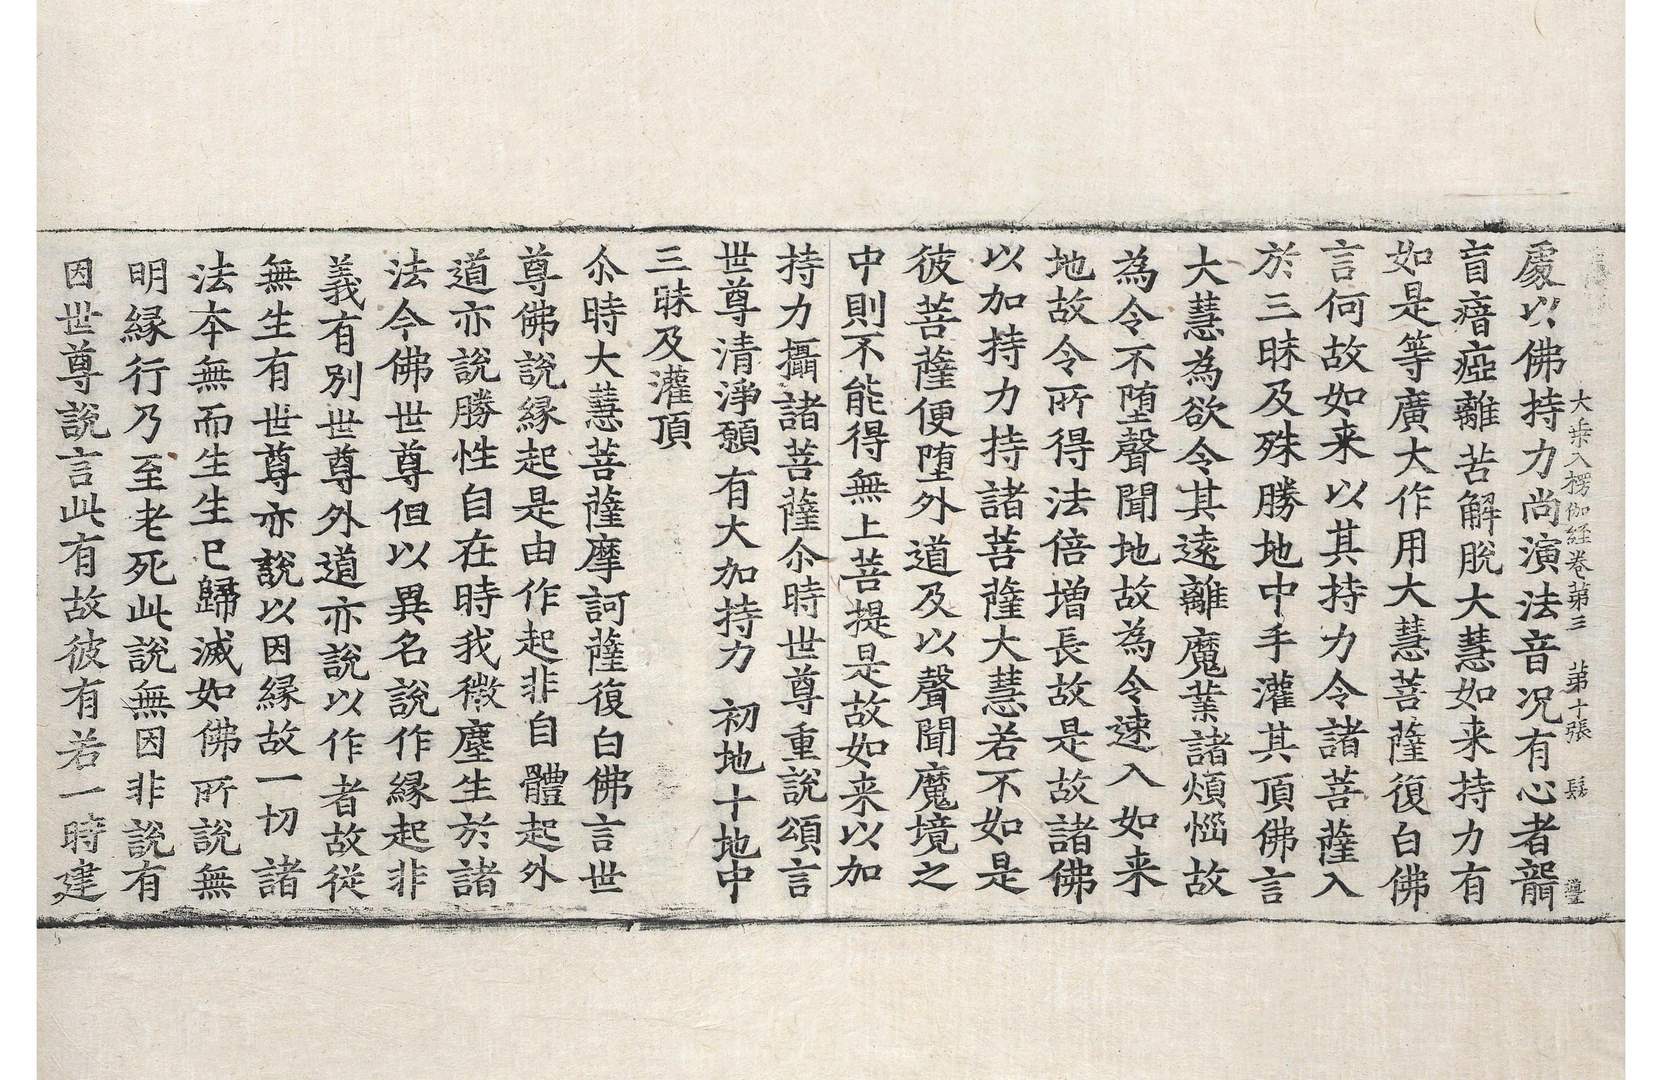 大乗入楞伽経巻第三　第十張　髮
處以佛持力尚演法音況有心者聾
盲瘖瘂離苦解脫大慧如来持力有
如是等廣大作用大慧菩薩復白佛
言何故如来以其持力令諸菩薩入
於三昧及殊勝地中手灌其頂佛言
大慧為欲令其遠離魔業諸煩惱故
為令不墮聲聞地故為令速入如来
地故令所得法倍增長故是故諸佛
以加持力持諸菩薩大慧若不如是
彼菩薩便墮外道及以聲聞魔境之
中則不能得無上菩提是故如来以加
持力攝諸菩薩尒時世尊重說頌言
世尊清淨願　有大加持力　初地十地中
三昧及灌頂
尒時大慧菩薩摩訶薩復白佛言世
尊佛說縁起是由作起非自體起外
道亦說勝性自在時我微塵生於諸
法今佛世尊但以異名說作縁起非
義有別世尊外道亦說以作者故從
無生有世尊亦說以因縁故一切諸
法本無而生生已歸滅如佛所說無
明縁行乃至老死此說無因非說有
因世尊說言此有故彼有若一時建